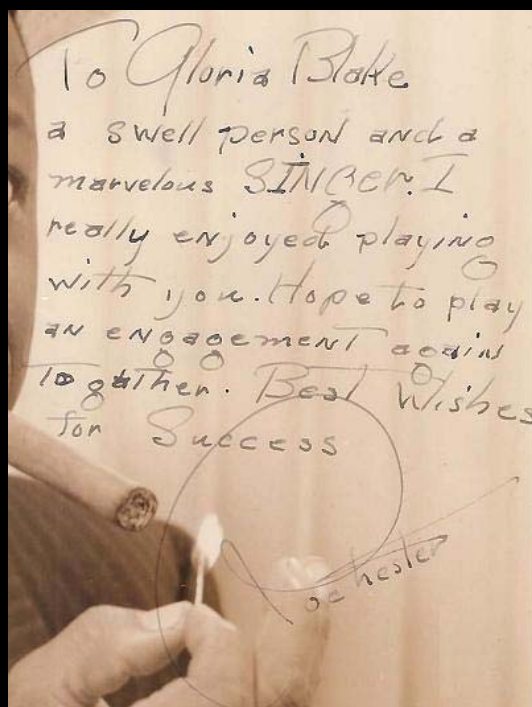 To Gloria Blake
a swell person and a
marvelous SINGER. I
really enjoyed playing
with you. Hope to play
an engagement again
Together. Best Wishes
for Success
Rochester